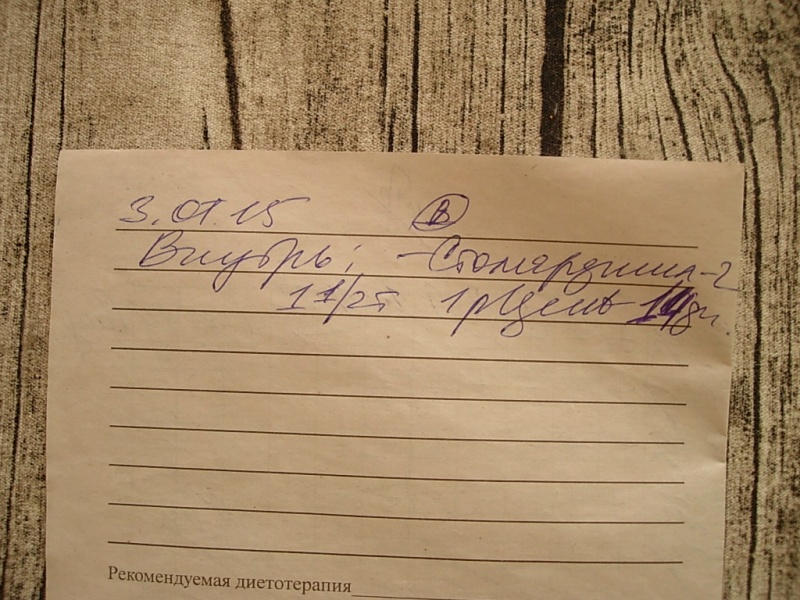 3.01.15 В
Внутрь: - Стомярджил-2
1 1/2т 1р/день 14дн.
Рекомендуемая диетотерапия